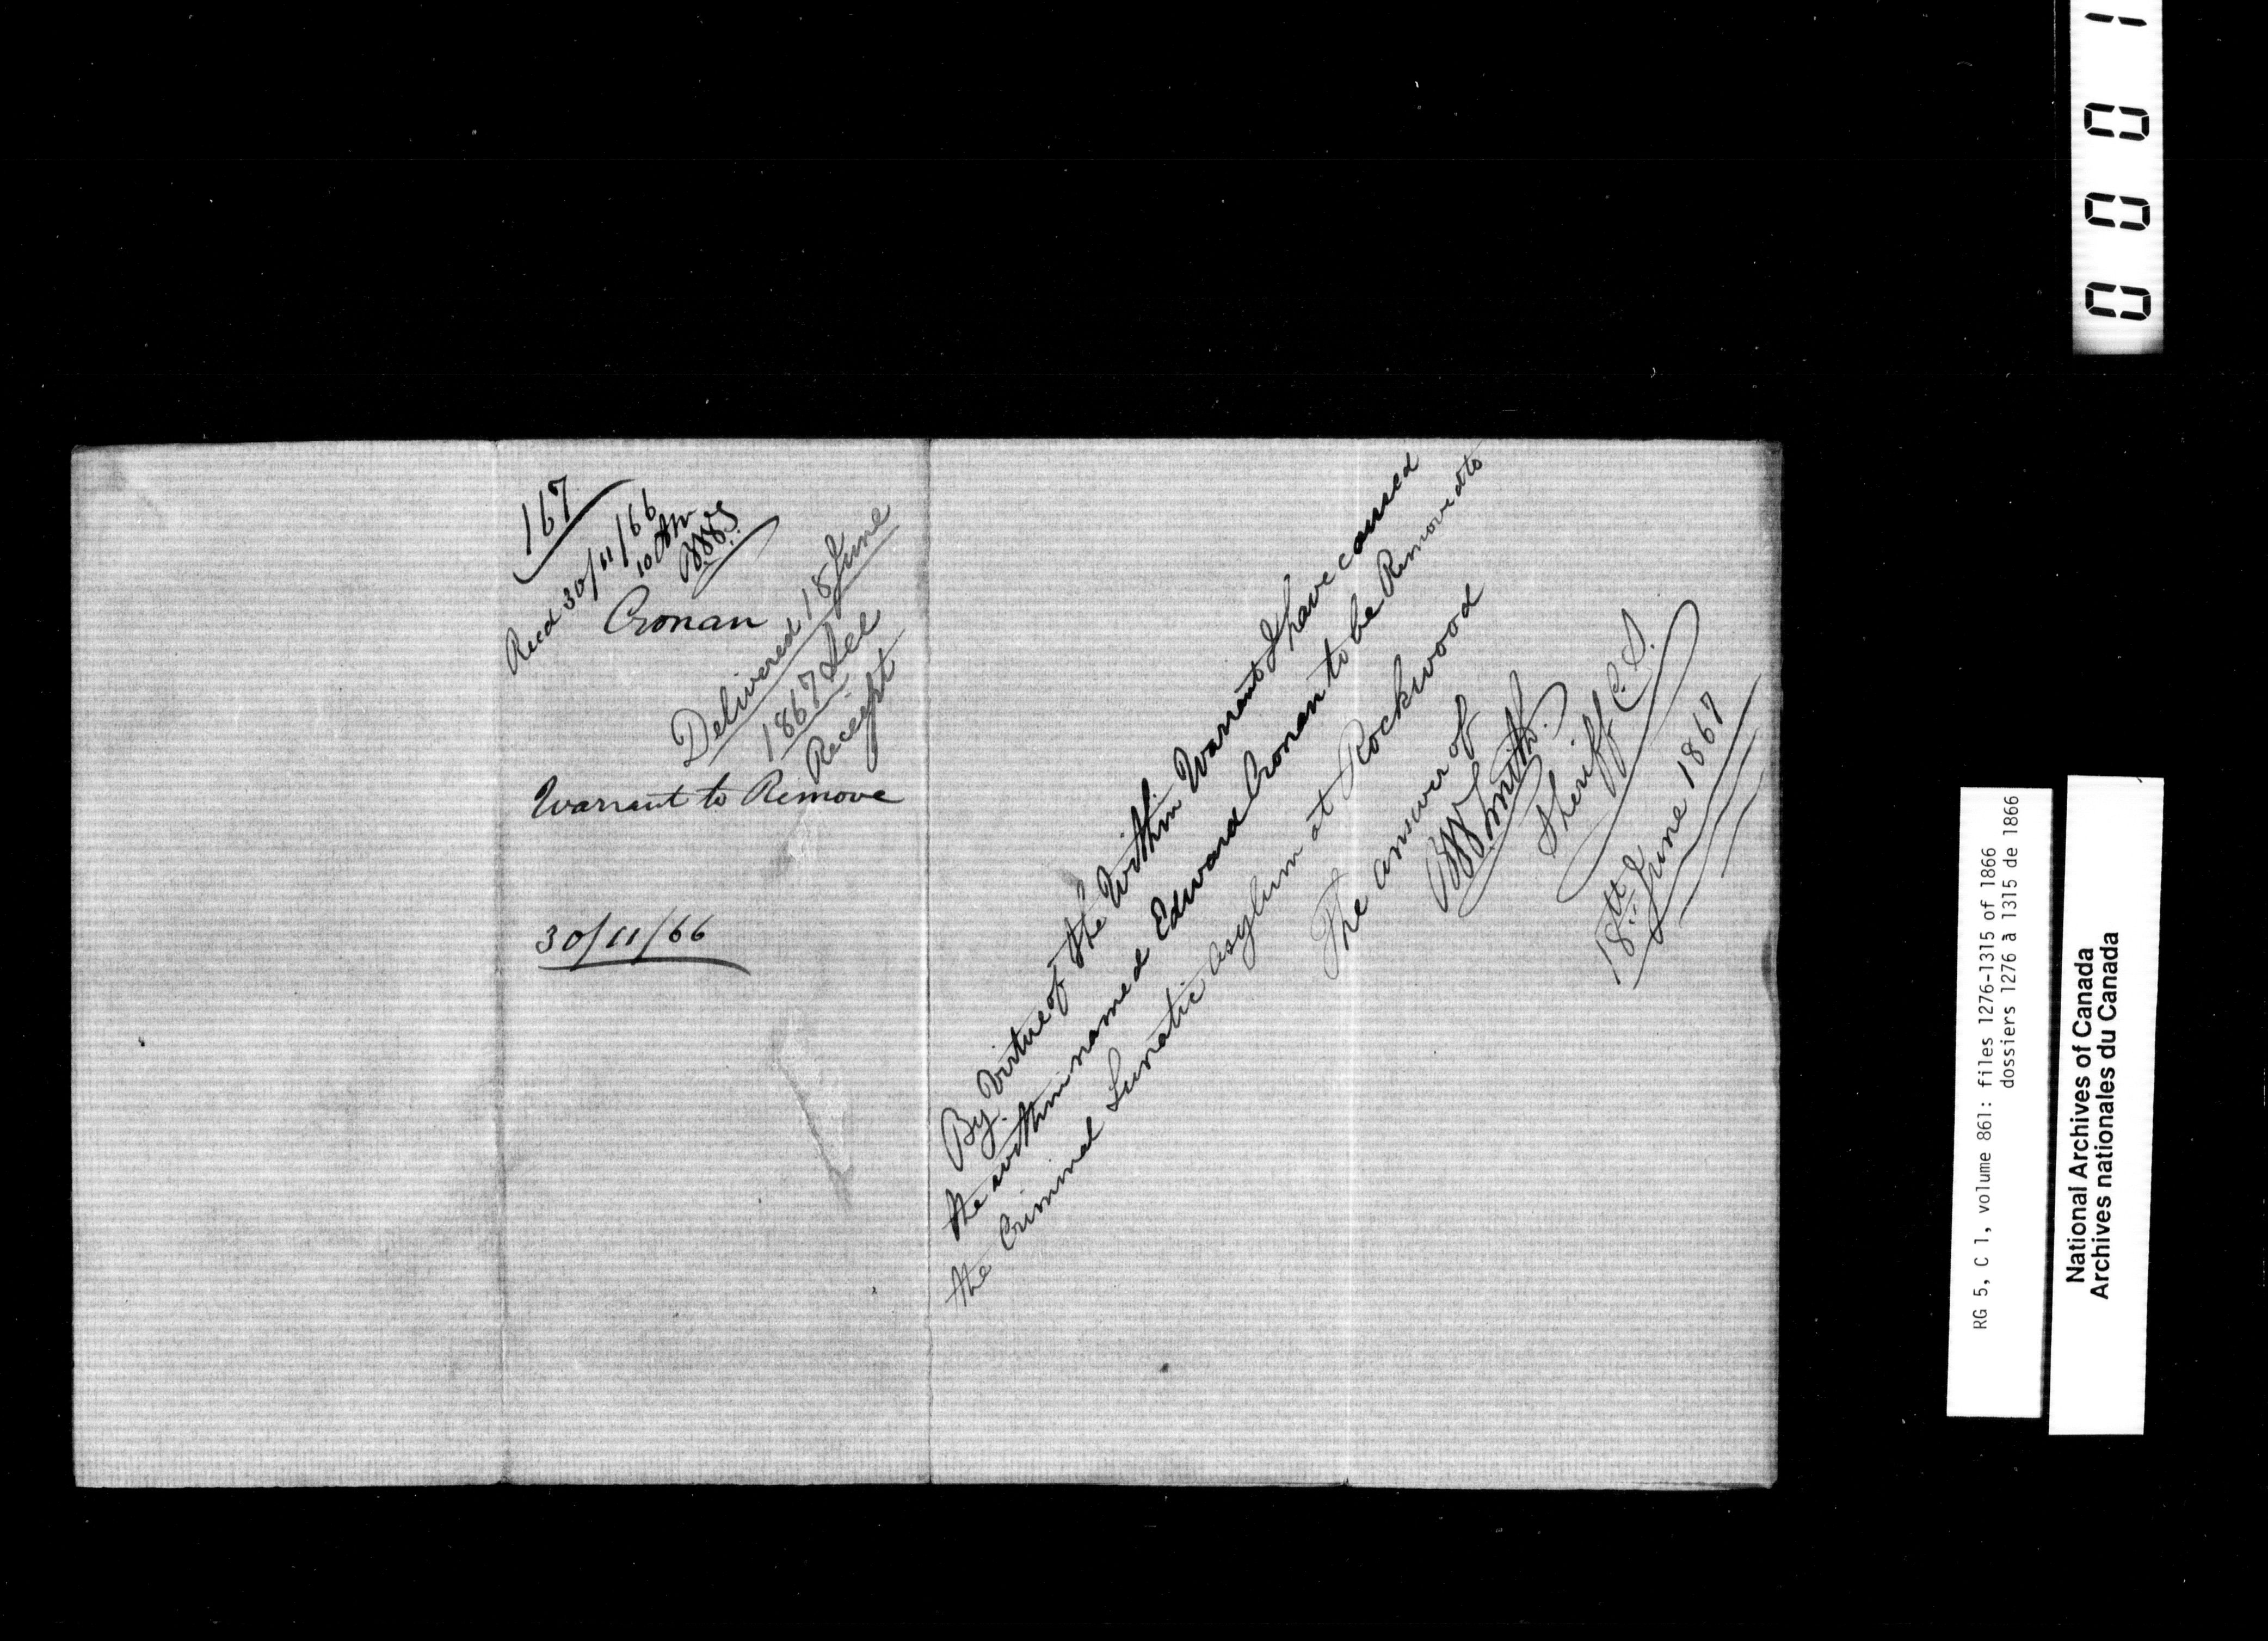 167
Recd 30/11/66
10 AM
BWS
Cronan
Delivered 18 June
1867 See
Receipt
Warrant to Remove
30/11/66
By Virtue of the Within Warrant I have caused
the within named Edward Cronan to be Removed to
the Criminal Lunatic Asylum at Rockwood
The answer of
BWSmith.
Sheriff C. S.
18th June 1867
RG 5, C 1, volume 861: files 1276-1315 of 1866
dossiers 1276 à 1315 de 1866
National Archives of Canada
Archives nationales du Canada
0 0 0 1